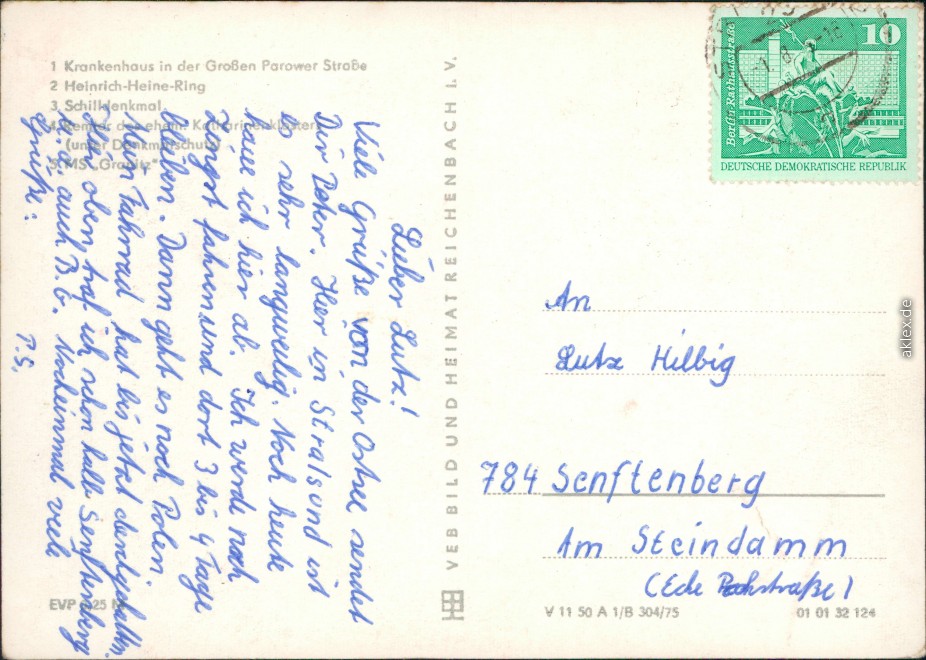 1 Krankenhaus in der Großen Parower Straße
2 Heinrich-Heine-Ring
3 Schilldenkmal
4 Remter des ehem. Katharinenklosters
(unter Denkmalschutz)
5 MS „Granitz"
EVP 0,25 M
Lieber Lutz!
Viele Grüße von der Ostsee sendet
Dir Peter. Hier in Stralsund ist
es sehr langweilig. Noch heute
haue ich hier ab. Ich werde nach
Zingst fahren und dort 3 bis 4 Tage
bleiben. Dann geht es nach Polen.
Mein Fahrrad hat bis jetzt durchgehalten.
Hier oben traf ich schon halb Senftenberg
u. a. auch B. G. Nocheinmal viele
Grüße: P.S.
VEB BILD UND HEIMAT REICHENBACH I. V.
10
Berlin-Rathausstraße
DEUTSCHE DEMOKRATISCHE REPUBLIK
An
Lutz Hilbig
784 Senftenberg
Am Steindamm
(Ecke
V 11 50 A 1/B 304/75
01 01 32 124
aklex.de